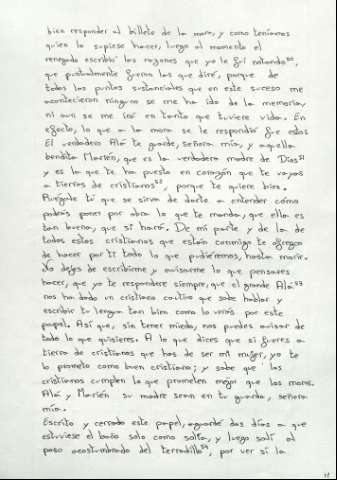 bien responder al billete de la mora, y como teníamos
quien lo supiese hacer, luego al momento el
renegado escribió las razones que yo le fui notando
que puntualmente fueron las que diré, porque de
todos los puntos sustanciales que en este suceso me
acontecieron ninguno se me ha ido de la memoria,
ni aun se me irá en tanto que tuviere vida. En
efecto, lo que a la mora se le respondió fue esto:
El verdadero Alá te guarde, señora mía, y aquella
bendita Marién, que es la verdadera madre de Dios
y es la que te ha puesto en corazón que te vayas
a tierras de cristianos, porque te quiere bien.
Ruégale tú que se sirva de darte a entender cómo
podrás poner por obra lo que te manda, que ella es
tan buena, que sí hará. De mi parte y de la de
todos estos cristianos que están conmigo te ofrezco
de hacer por ti todo lo que pudiéremos, hasta morir.
No dejes de escribirme y avisarme lo que pensares
hacer, que yo te responderé siempre, que el grande Alá
nos ha dado un cristiano cautivo que sabe hablar y
escribir tu lengua tan bien como lo verás por este
papel. Así que, sin tener miedo, nos puedes avisar de
todo lo que quisieres. A lo que dices que si fueres a
tierra de cristianos que has de ser mi mujer, yo te
lo prometo como buen cristiano; y sabe que los
cristianos cumplen lo que prometen mejor que los moros.
Alá y Marién su madre sean en tu guarda, señora
mía.
Escrito y cerrado este papel, aguardé dos días a que
estuviese el baño solo como solía, y luego salí al
paso acostumbrado del terradillo, por ver si la